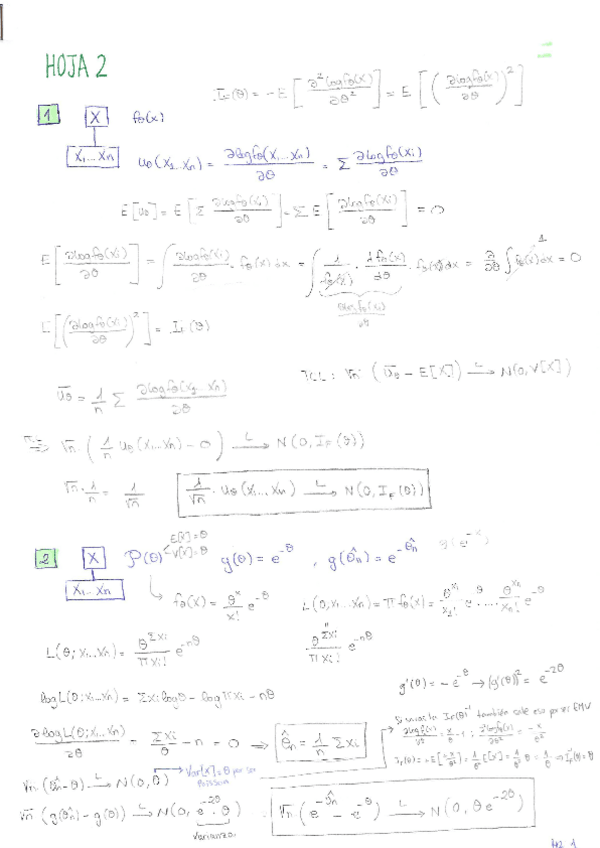 HOJA 2
I_F(θ) = -E[∂²logfθ(x)/∂θ²] = E[(∂logfθ(x)/∂θ)²]
1 X fθ(x)
X₁...Xn Uθ(X₁...Xn) = ∂logfθ(X₁...Xn)/∂θ = Σ ∂logfθ(Xi)/∂θ
E[Uθ] = E[Σ ∂logfθ(Xi)/∂θ] = Σ E[∂logfθ(Xi)/∂θ] = 0
E[∂logfθ(Xi)/∂θ] = ∫ ∂logfθ(Xi)/∂θ · fθ(x)dx = ∫ 1/fθ(x) · ∂fθ(x)/∂θ · fθ(x)dx = ∂/∂θ ∫ fθ(x)dx = 0
1
∂logfθ(Xi)/∂θ
E[(∂logfθ(Xi)/∂θ)²] = I_F(θ)
TCL: √n (Ūθ - E[X]) →L N(0, V[X])
Ūθ = 1/n Σ ∂logfθ(X₁...Xn)/∂θ
⇒ √n · (1/n Uθ(X₁...Xn) - 0) →L N(0, I_F(θ))
√n · 1/n = 1/√n
1/√n · Uθ(X₁...Xn) →L N(0, I_F(θ))
2 X P(θ) E[X]=θ V[X]=θ g(θ) = e^-θ , g(θ̂n) = e^-θ̂n
X₁...Xn
fθ(x) = θ^x/x! e^-θ L(θ, X₁...Xn) = Π fθ(x) = θ^x₁/x₁! e^-θ ... θ^xn/xn! e^-θ
L(θ; X₁...Xn) = θ^Σxi/Πxi! e^-nθ
= θ^Σxi/Πxi! e^-nθ
g'(θ) = -e^-θ → (g'(θ))² = e^-2θ
logL(θ; X₁...Xn) = Σxi logθ - logΠxi - nθ
Si usas la I_F(θ)^-1 también sale eso por ser EMV
∂logL(θ; X₁...Xn)/∂θ = Σxi/θ - n = 0 ⇒ θ̂n = 1/n Σxi
√n (θ̂n - θ) →L N(0, θ) → Var[X] = θ por ser Poisson
√n (g(θ̂n) - g(θ)) →L N(0, e^-2θ · θ)
Varianza
√n (e^-θ̂n - e^-θ) →L N(0, θ e^-2θ)
H2 1